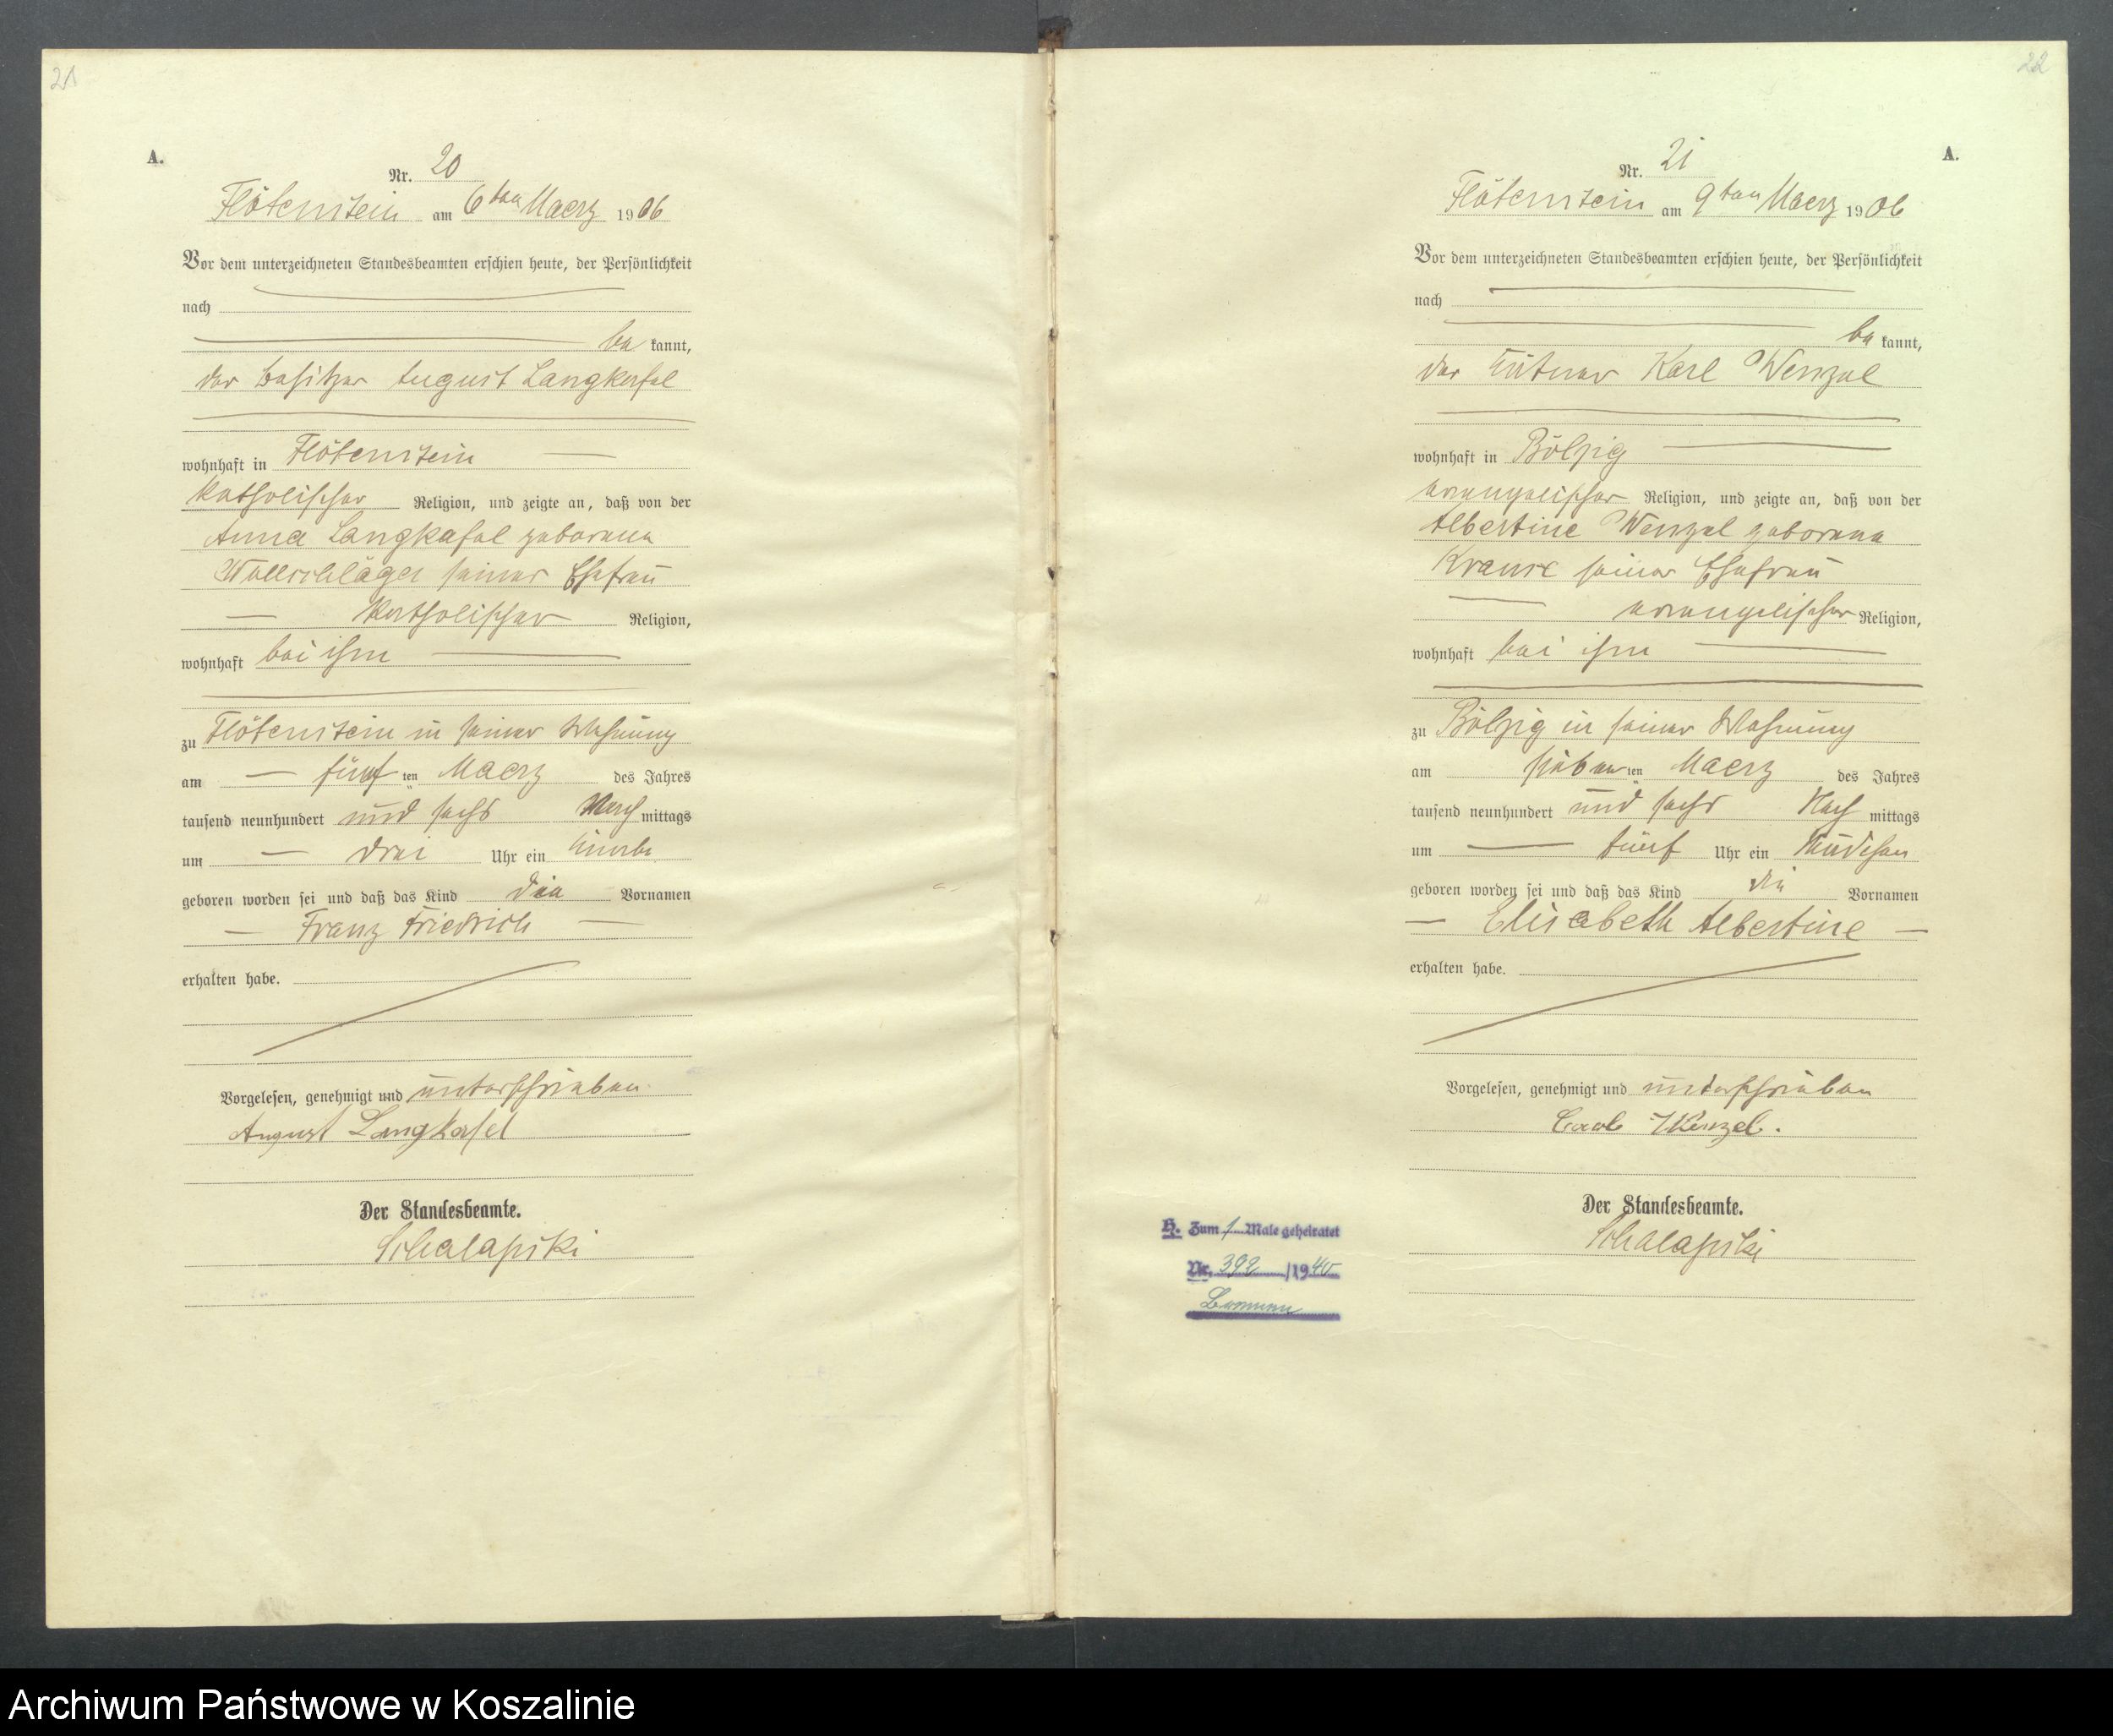 21
A.
Nr. 20
Flötenstein am 6ten Maerz 1906
Vor dem unterzeichneten Standesbeamten erschien heute, der Persönlichkeit
nach
be kannt,
der Besitzer August Langkafel
wohnhaft in Flötenstein
katholischer Religion, und zeigte an, daß von der
Anna Langkafel geborene
Wollschläger seiner Ehefrau
katholischer Religion,
wohnhaft bei ihm
zu Flötenstein in seiner Wohnung
am fünften Maerz des Jahres
tausend neunhundert und sechs Nach mittags
um drei Uhr ein Knabe
geboren worden sei und daß das Kind die Vornamen
Franz Friedrich
erhalten habe.
Vorgelesen, genehmigt und unterschrieben
August Langkafel
Der Standesbeamte.
Schalapski
22
A.
Nr. 21
Flötenstein am 9ten Maerz 1906
Vor dem unterzeichneten Standesbeamten erschien heute, der Persönlichkeit
nach
be kannt,
der Karl Wenzel
wohnhaft in Bölzig
evangelischer Religion, und zeigte an, daß von der
Albertine Wenzel geborene
Krause seiner Ehefrau
evangelischer Religion,
wohnhaft bei ihm
zu Bölzig in seiner Wohnung
am siebenten Maerz des Jahres
tausend neunhundert und sechs Nach mittags
um fünf Uhr ein Mädchen
geboren worden sei und daß das Kind die Vornamen
Elisabeth Albertine
erhalten habe.
Vorgelesen, genehmigt und unterschrieben
Carl Wenzel.
Der Standesbeamte.
Schalapski
H. Zum 1 Male geheiratet
Nr. 392 /1940
Archiwum Państwowe w Koszalinie